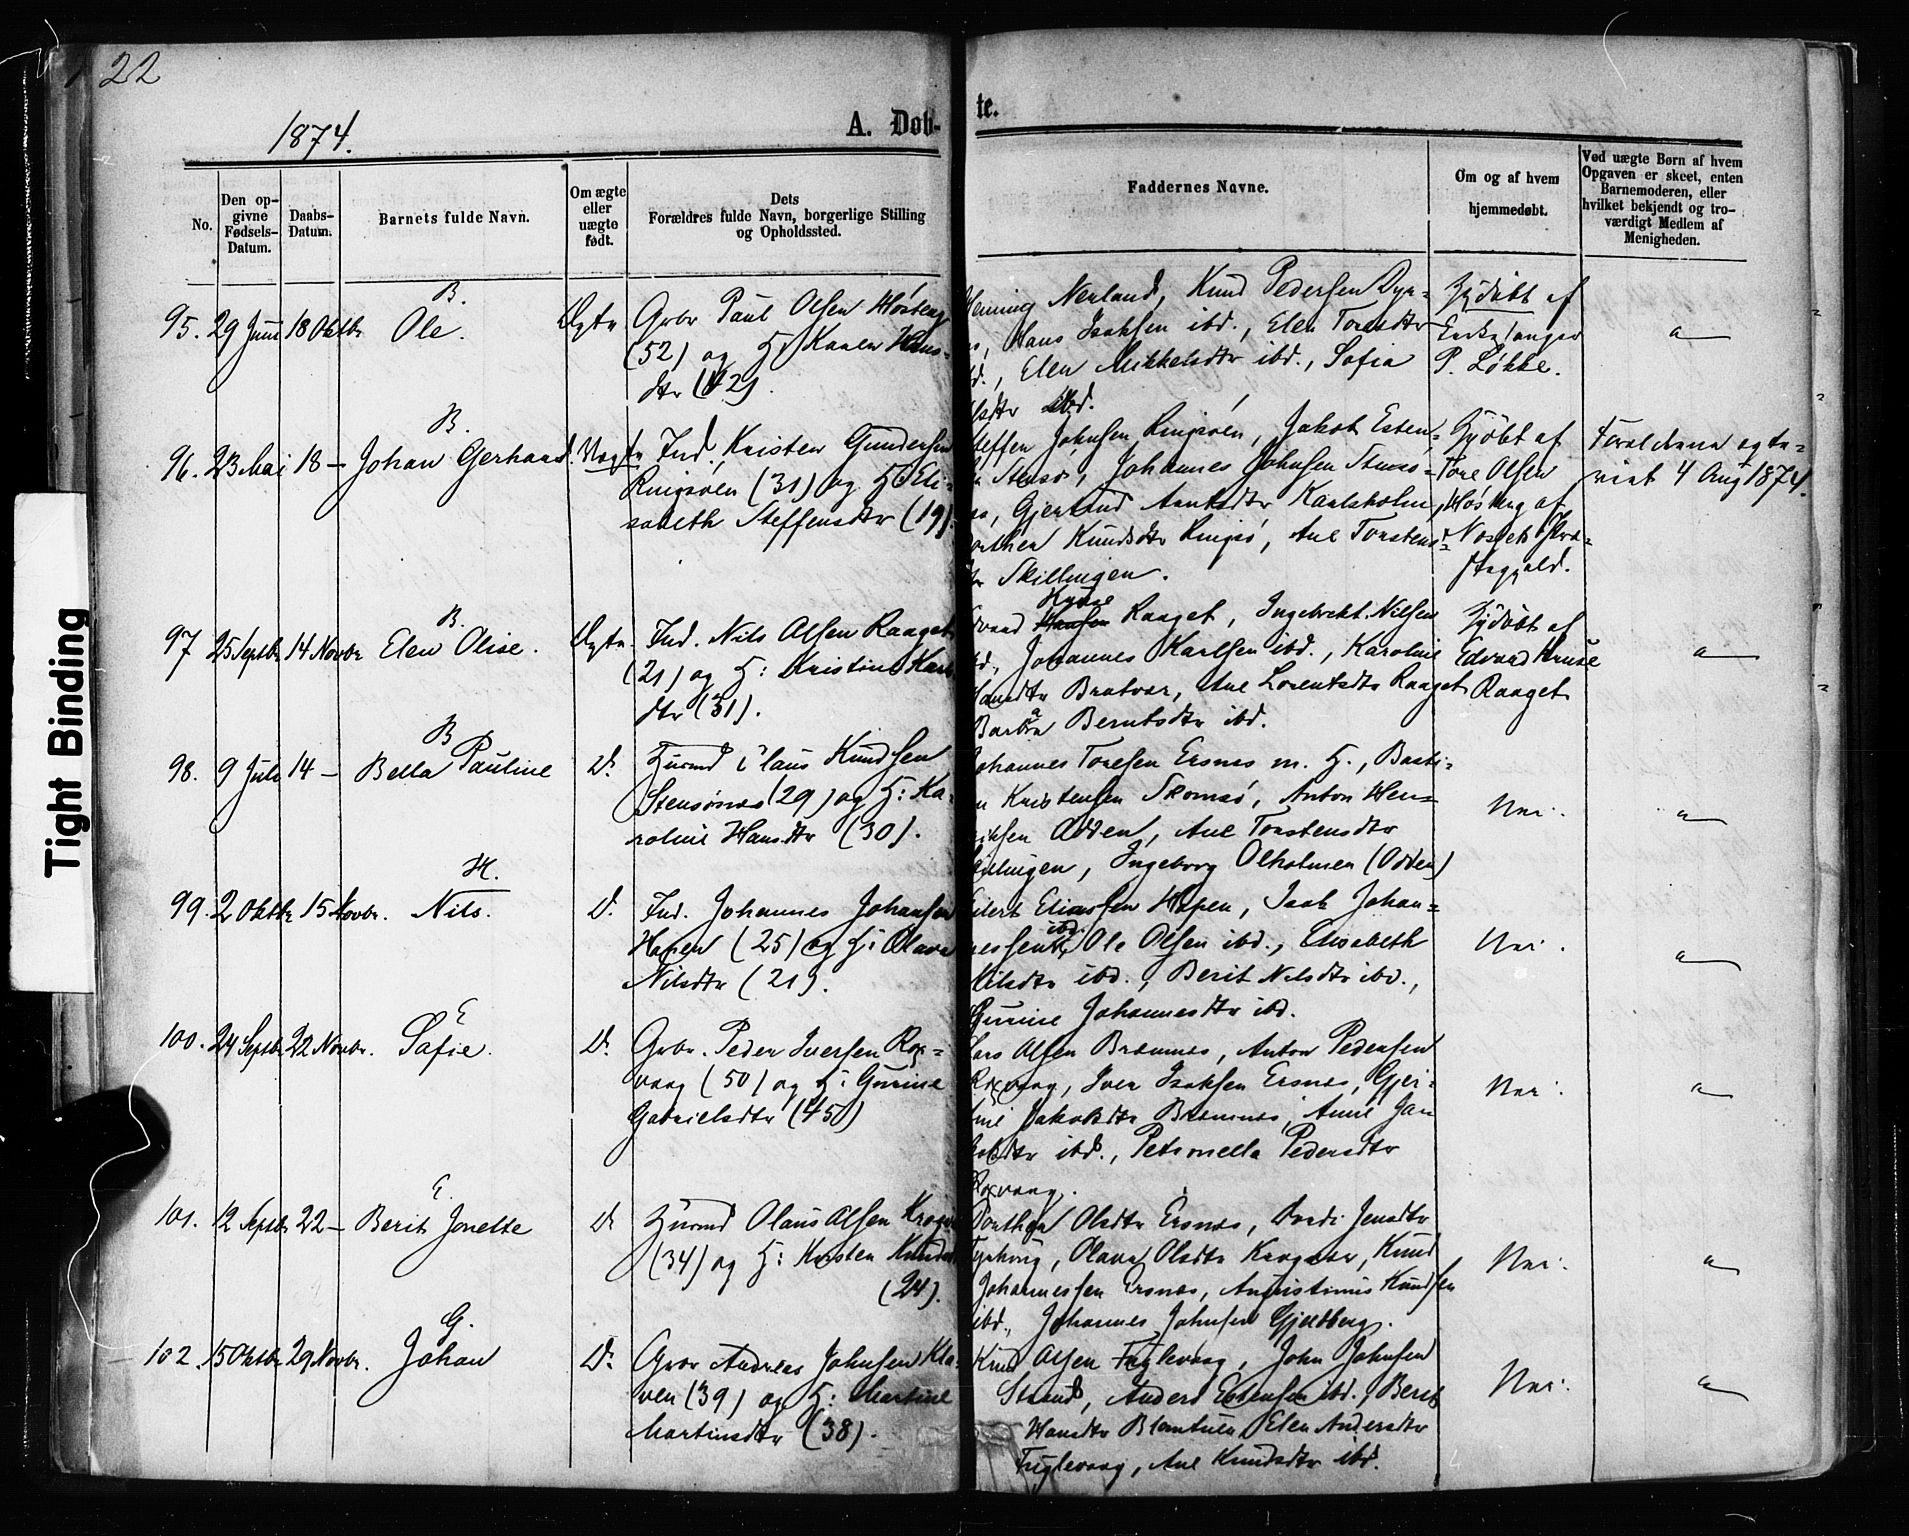 22
1874.
A. Døb-
te.
No.
Den op-
givne
Fødsels-
Datum.
Daabs-
Datum.
Barnets fulde Navn.
Om ægte
eller
uægte
født.
Dets
Forældres fulde Navn, borgerlige Stilling
og Opholdssted.
Faddernes Navne.
Om og af hvem
hjemmedøbt.
Ved uægte Børn af hvem
Opgaven er skeet, enten
Barnemoderen, eller
hvilket bekjendt og tro-
værdigt Medlem af
Menigheden.
B.
95. 29 Juni 18 Oktbr Ole. Ægte
Gvbr Paul Olsen Høsberg
(52) og H: Karen Hans-
dtr (42).
Henning Nerland, Knud Pedersen Dyr-
Hans Isaksen ibd., Elen Torsdtr
Elen Mikkelsdtr ibd., Sofia
ibd.
Hjdøbt af
P. Løkke.
B.
96. 23 Mai 18 – Johan Gerhard. Uægte
Ind. Kristen Gundersen
Ringsøen (31) og H: Eli-
sabeth Steffensdtr (19).
Steffen Johnsen Ringsøen, Jakob Esten-
Stensø, Johannes Johnsen Stensø-
Gjertrud Arntsdtr Karlsholm,
Knudsdtr Ringsø, Ane Torstens-
Skillingen.
Hjdøbt af
Tore Olsen
Høsberg af
Næsets Præ-
stegjæld.
Forældrene ægte-
viet 4 Aug 1874.
B.
97 25 Septbr 14 Novbr Elen Olise. Ægte.
Ind. Nils Olsen Raaget
(21) og H: Kristine Karls
dtr (31).
Kruse
Edvard Hansen Raaget, Ingebrekt Nilsen
Johannes Karlsen ibd., Karoline
Hansdtr Bratvær, Ane Lorentsdtr Raaget
Barbra Berntsdtr ibd.
Hjdøbt af
Edvard Kruse
Raaget
B
98. 9 Juli 14 – Bella Pauline D.
Husmd Claus Knudsen
Stensønes (29) og H: Ka-
roline Hansdtr (30).
Johannes Toresen Ersnes m. H., Basti-
Kristensen Skomsø, Anton Hen-
riksen Odden, Ane Torstensdtr
Skillingen, Ingeborg Olholmen (Odden)
Nei.
H.
99. 2 Oktbr 15 Novbr. Nils. D.
Ind. Johannes Johansen
Hopen (25) og H: Olava
Nilsdtr (21).
Eilert Eliassen Hopen, Isak Johan-
ibd.
nessen Ole Olsen ibd., Elisabeth
Nilsdtr ibd., Berit Nilsdtr ibd.,
Gurine Johannesdtr ibd.
Nei.
E
100. 24 Septbr 22 Novbr. Sofie. D.
Gvbr. Peder Iversen Rox-
vaag (50) og H: Gurine
Gabrielsdtr (45)
Lars Olsen Bremnes, Anton Pedersen
Roxvaag, Iver Isaksen Ersnes, Gjer-
tine Jakobsdtr Bremnes, Anne Ja-
kobsdtr ibd., Petronella Pedersdtr
Roxvaag.
Nei.
E.
101. 12 Septbr 22 – Berit Jonette D.
Husmd Olaus Olsen
(34) og H: Kirsten Knuds
(24).
Olsdtr Ersnes, Jensdtr
Olava Olsdtr Knud
Johannessen Ersnes, Augustinus Knudsen
ibd., Johannes Johnsen Gjeldberg.
Nei.
G.
102. 15 Oktbr 29 Novbr. Johan D.
Gvbr Andreas Johnsen Kla-
ven (39) og H: Martine
Martinsdtr (38).
Knud Olsen Fuglevaag, John Johnsen
Strand, Anders Estensen ibd., Berit
Hansdtr Blomtuen Elen Andersdtr
Fuglevaag, Ane Knudsdtr ibd.
Nei.
Tight Binding